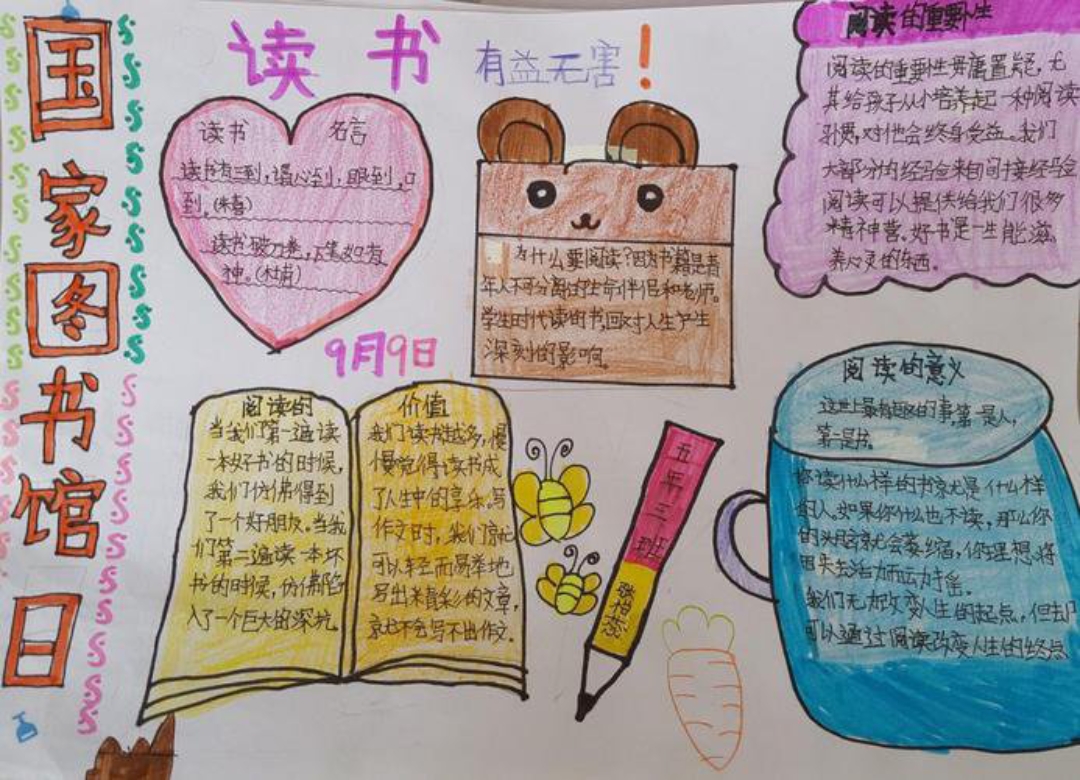 国家图书馆日
读书
有益无害!
读书 名言
读书有三到,谓心到,眼到,口
到。(朱熹)
读书破万卷,下笔如有
神。(杜甫)
9月9日
为什么要阅读?因为书籍是青
年人不可分离的生命伴侣和老师。
学生时代读的书,回对人生产生
深刻的影响。
阅读的重要性
阅读的重要性毋庸置疑,尤
其给孩子从小培养起一种阅读
习惯,对他会终身受益。我们
大部分的经验来自间接经验
阅读可以提供给我们很多
精神营。好书是一生能滋
养心灵的东西。
阅读的
当我们第一遍读
一本好书的时候,
我们仿佛得到
了一个好朋友。当我
们第二遍读一本坏
书的时候,仿佛陷
入了一个巨大的深坑。
价值
我们读书越多,慢
慢觉得读书成
了人生中的享乐。写
作文时,我们就
可以轻而易举地
写出精彩的文章,
就不会写不出作文。
五年三班
阅读的意义
这世上最有趣的事,第一是人,
第二是书。
你读什么样的书就是什么样
的人。如果你什么也不读,那么你
的头脑就会萎缩,你理想将
因失去活力而动摇。
我们无力改变人生的起点,但却
可以通过阅读改变人生的终点